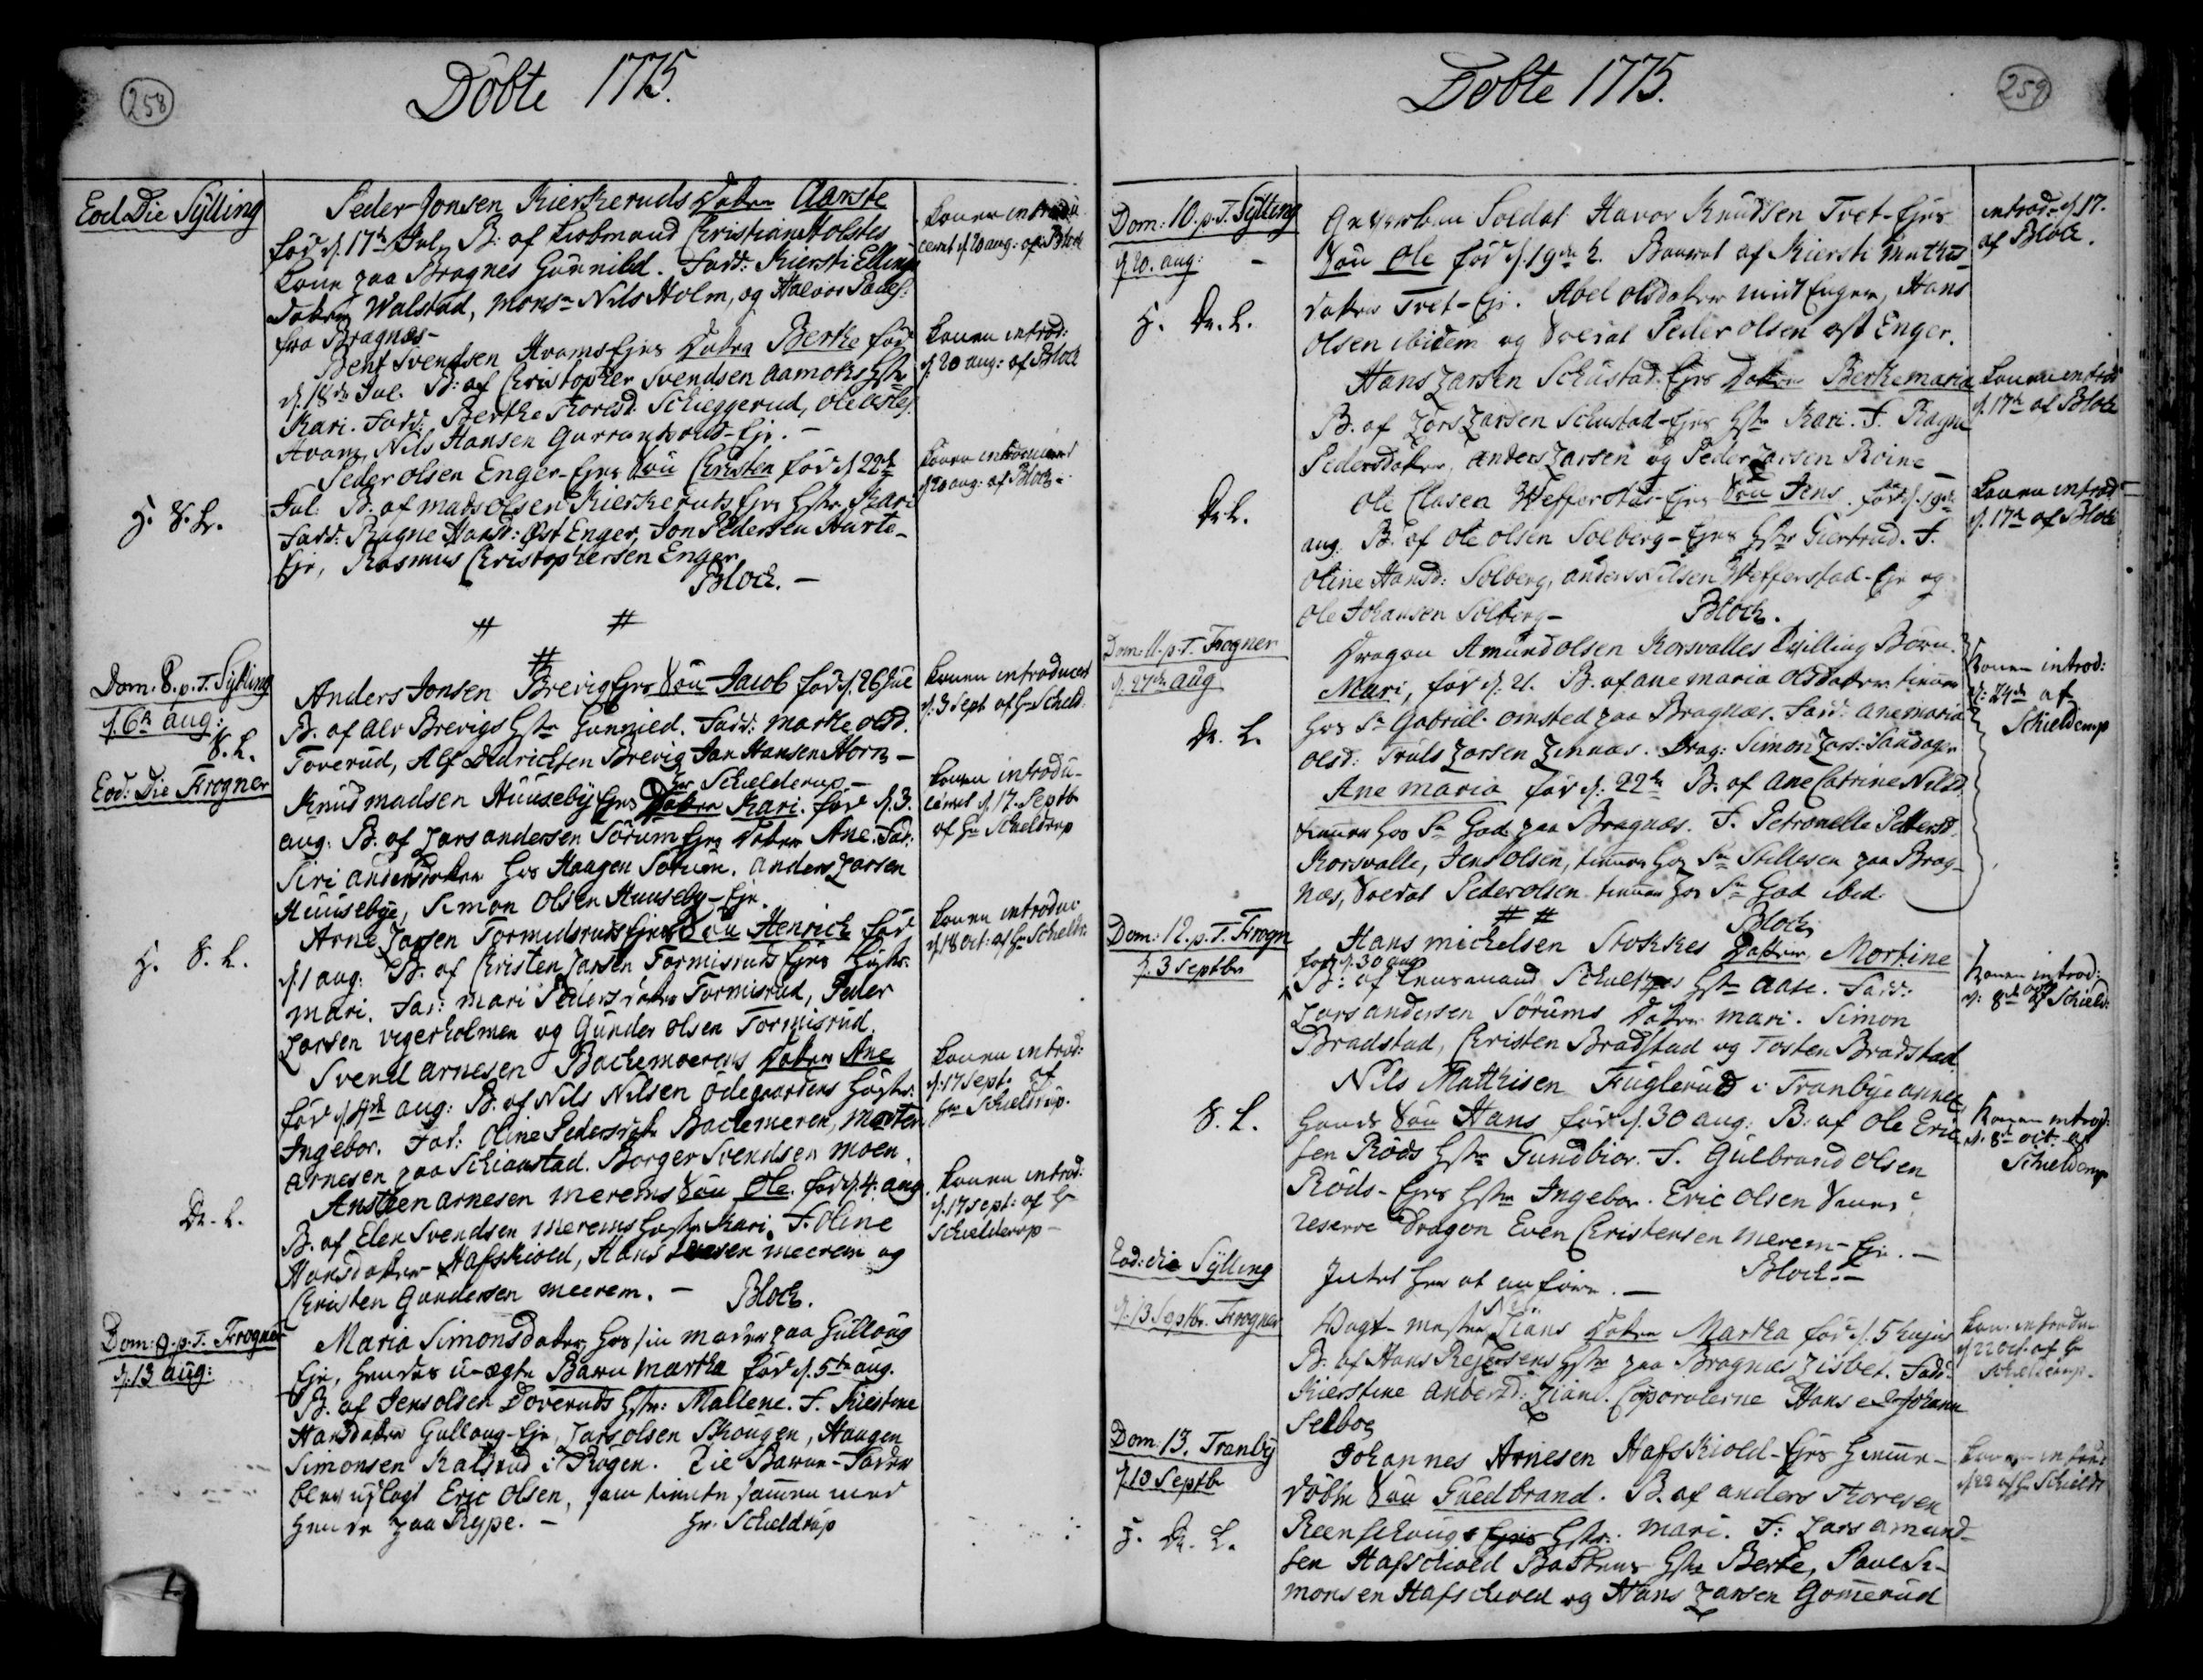 258
Döbte 1775.
Eod. Die Sylling
Peder Jonsen Kierkeruds Datter Aarste
föd d. 17de Jul. B: af Kiobmand Christian Holstes
Kone paa Bragnes Gunnild. Fadd: Kiersti Ellings
datter Walstad, Monsr Nils Holm, og Halvor
fra Bragnæs-
Konen introdu
ceret d. 20 aug: af Block
Bent Svendsen Hvams Ejes Datter Berthe föd
d. 18de Jul. B: af Christopher Svendsen Aamots Hstr
Kari. Fadd: Berthe Thoresd: Schieggerud, Ole
Hvam, Nils Hansen Garrantsrud-Eje.-
Konen introd:
d. 20 aug: af Block
Peder Olsen Enger-Ejes Sön Christen föd d. 22de
Jul: B. af Mads Olsen Kierkeruds Ejes Hstr Kari
Fadd: Ragne Hansd: Öst Enger, Jon Pedersen Hurte-
Eje, Rasmus Christophersen Enger
Block.-
Konen introduceret
d. 20 aug: af Block.
H. S. L.
# #
#
Dom. 8. p. T. Sylling
d. 6te aug:
S. L.
Anders Jonsen Brevig Ejes Sön Jacob föd d. 26 Jul
B. af Alv Brevigs Hstr Gunnild. Fadd: Marthe Olsd.
Toverud, Alf Didrichsen Brevig Jan Hansen Horn-
Hr Schielderup-
Konen introduceret
d. 3 Sept af Hr Schield.
Eod: Die Frogner
Knud Madsen Huuseby Ejes Datter Kari. föd d. 3.
aug: B. af Lars Andersen Sörum Ejes Datter Ane. Fad:
Siri Andersdatter hos Haagen Sörum. Anders Larsen
Huusebye, Simon Olsen Huuseby-Eje.
Konen introdu-
ceret d. 17. Septb
af Hr Schieldrup
Arne Larsen Tormidsruds Ejes Sön Henrich föd
d. 1 aug: B. af Christen Larsen Tormisruds Ejes Hustr.
Mari. Fad: Mari Pedersdatter Tormisrud, Peder
Larsen Vegerholmen og Gunder Olsen Tormisrud.
Konen introdu:
d. 18 Oct: af Hr Schieldr.
H. S. L.
Svend Arnesen Bachemoerens Datter Ane
föd d. 4de aug: B. af Nils Nilsen Ödegaardens Hustr.
Ingebor. Fad: Oline Pedersdtr Bachemeren, Morten
Arnesen paa Schianstad. Borger Svendsen Moen.
Konen introd:
d. 17 Sept. af
Hr Schieldrup.
Ansteen Arnesen Merems Sön Ole. föd d. 4. aug.
B. af Elen Svendsen Merems Hustr Kari. F. Oline
Hansdatter Hafskiold, Hans meerem og
Christen Gundersen meerem.- Block.
Konen introd:
d. 17 Sept: af Hr
Schielderop-
Dr. L.
Dom: 9. p. T. Frogner
d. 13 aug:
Maria Simonsdatter hos sin moder paa Gulloug
Eje, hendes u-ægte Barn Martha föd d. 5te aug.
B. af Jens Olsen Doveruds Hstr: Mallene. F. Kiestine
Hansdatter Gulloug-Eje, Lars Olsen Skougen, Haagen
Simonsen Kalsrud i Rögen. Til Barne-Fader
blev udlagt Eric Olsen, som tiente sammen med
hende paa Rype.- Hr. Schieldrup
259
Döbte 1775.
Dom: 10. p. T. Sylling
d. 20. aug:
H. Dr. L.
Soldat Havor Knudsen Tvet-Ejes
Sön Ole föd d. 19de h. Baaret af Kiersti Mathis
datter Tvet-Eje. Abel Olsdatter midt Enger, Hans
Olsen ibidem og Soldat Peder Olsen öst Enger.
introd: d. 17.
af Block.
Hans Larsen Schustad-Ejes Datter Berthe maria
B. af Lars Larsen Schustad-Ejes Hstr Kari. F. Ragne
Pedersdatter, Anders Larsen og Peder Larsen Roine
Konen introd
d. 17de af Block
Dr. L.
Ole Clasen Wefferstas-Ejes Sön Jens. föd d. 19de
aug: B. af Ole Olsen Solberg-Ejes Hstr Giertrud. F.
Oline Hansd: Solberg, Anders Nilsen Wefferstad-Eje og
Ole Johansen Solberg- Block.
Konen introd
d. 17de af Block
Dom: 11. p. T. Frogner
d. 27de aug
Dr. L.
Dragon Amund Olsen Korsvalles Tvilling Börn.
Mari, föd d. 21. B. af Ane Maria Olsdatter tienne
hos Sr Gabriel Omsted paa Bragnæs. Fadd: Anemaria
Olsd: Truls Larsen Linnæs. Drag: Simon Lars:
Ane Maria föd d: 22de B. af Ane Catrine Nilsd
tienne hos Sr Gad paa Bragnæs. F. Petronelle Pettersd.
Korsvalle, Jens Olsen, tienner hos Sr Stillesen paa Brag-
næs, Soldat Peder Olsen tienner hos Sr Gad ibid.
# # Block
Konen introd:
d: 24de af
Schielderup
Dom: 12. p. T. Frogn
d. 3 Septbr
Hans Michelsen Stokkes Datter, Mortine
föd d. 30 aug
B: af Lensmand Schultzes Hstr Aase. Fadd:
Lars Andersen Sörums Datter Mari. Simon
Bradstad, Christen Bradstad og Tosten Bradstad.
Konen introd:
d: 8de Oct af Schield:
S. L.
Nils Matthisen Fuglerud i Tranbye annex
hands Sön Hans föd d. 30 aug: B: af Ole Eric
sen Röds Hstr Gundbior. F. Gulbrand Olsen
Röds-Ejes Hstr Ingebor. Eric Olsen
reserve Dragon Even Christensen Merem-Eje.-
Block.-
Konen introd:
d. 8de oct. af
Schielderup
Eod: die Sylling
Intet her at anföre.-
d. 13 Septbr. Frogner
Vagt-mester Liäns Datter Martha föd d. 5 hujus
B: af Hans Rejersens Hstr paa Bragnæs Lisbet. Fadd:
Kierstine Andersd: Lian. Coporalerne Hans og Johan
Selboe
Kon. introdu
d 22 Oct. af Hr
Schielderup.
Dom: 13. Tranby
d. 10 Septbr
H. Dr. L.
Johannes Arnesen Hafskiold-Ejes hiemme-
döbte Sön Guldbrand. B. af Anders Thoresen
Reenskougs Ejes Hstr. Mari. F: Lars Amund-
sen Hafschiold Bakkens Hstr Berthe, Paul Si-
monsen Hafschiold og Hans Larsen Gomerud
Konen introd
d 22 af Hr Schieldr